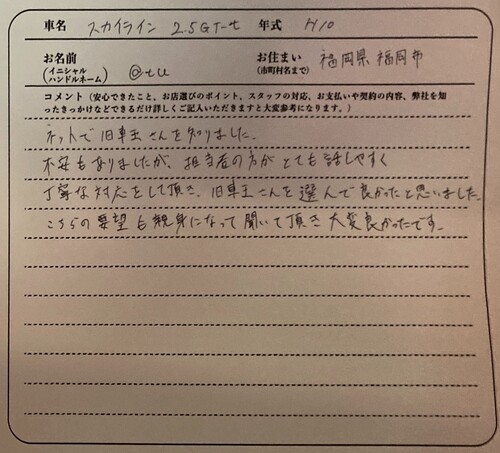 車名 スカイライン 2.5GT-t 年式 H10
お名前 お住まい 福岡県福岡市
(イニシャル ハンドルネーム) @tu (市町村名まで)
コメント(安心できたこと、お店選びのポイント、スタッフの対応、お支払いや契約の内容、弊社を知
ったきっかけなどできるだけ詳しくご記入いただきますと大変参考になります。)
ネットで旧車王さんを知りました。
不安もありましたが、担当者の方がとても話しやすく
丁寧な対応をして頂き、旧車王さんを選んで良かったと思いました。
こちらの要望も親身になって聞いて頂き大変良かったです。